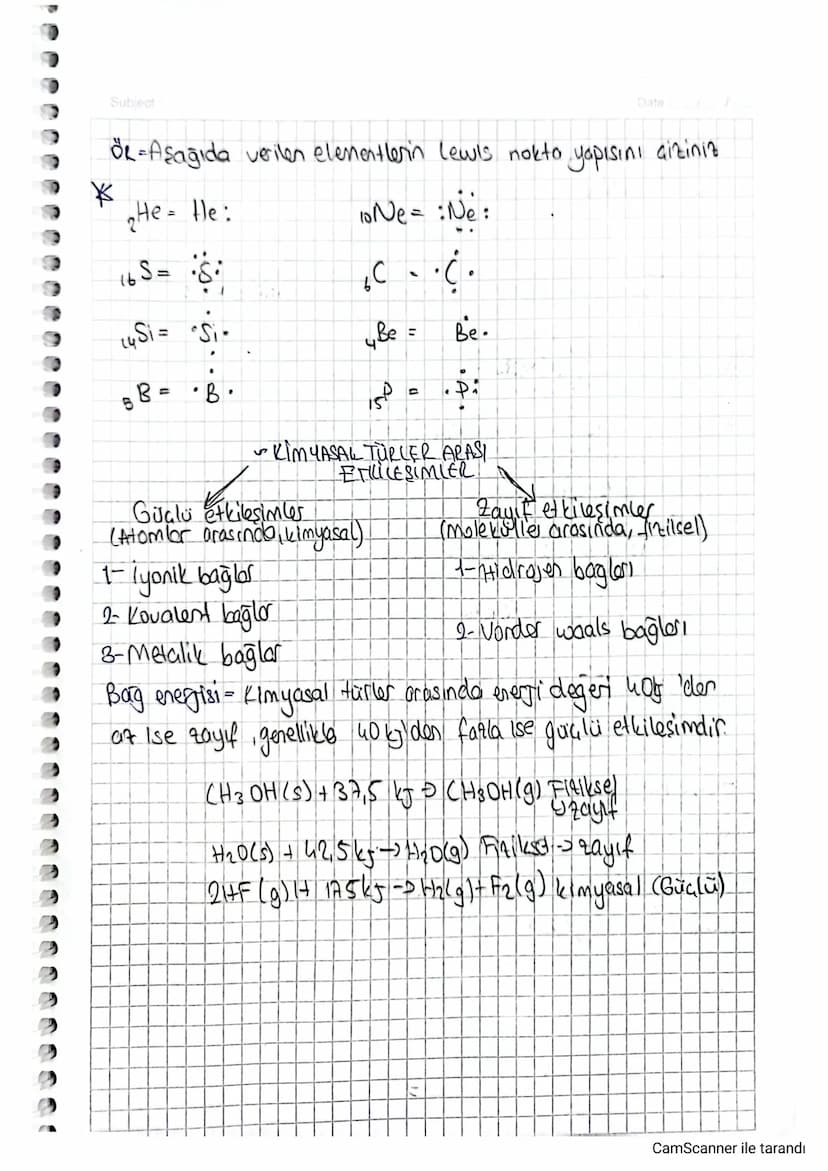 Subject
Date / /
ÖR=Aşağıda verilen elementlerin lewis nokta yapısını çiziniz
₂He = He:
₁₀Ne = :Ne:
₁₆S = :S:
₆C - ·C·
₁₄Si = ·Si·
₄Be = Be·
₅B = ·B·
₁₅P = ·P:
~ KİMYASAL TÜRLER ARASI
ETKİLEŞİMLER
Güçlü etkileşimler
(Atomlar arasında, kimyasal)
1- İyonik bağlar
2- Kovalent bağlar
3- Metalik bağlar
Zayıf etkileşimler
(moleküller arasında, fiziksel)
1- Hidrojen bağları
2- Vander waals bağları
Bağ energisi = Kimyasal türler arasında energi değeri 40kj 'den
az ise zayıf, genellikle 40 kj'den fazla ise güçlü etkileşimdir.
CH3OH(s) + 37,5 kj → CH3OH(g) Fiziksel
↳ zayıf
H2O(s) + 42,5kj → H2O(g) Fiziksel → zayıf
2HF(g) + 175kj → H2(g) + F2(g) kimyasal (Güçlü)
CamScanner ile tarandı